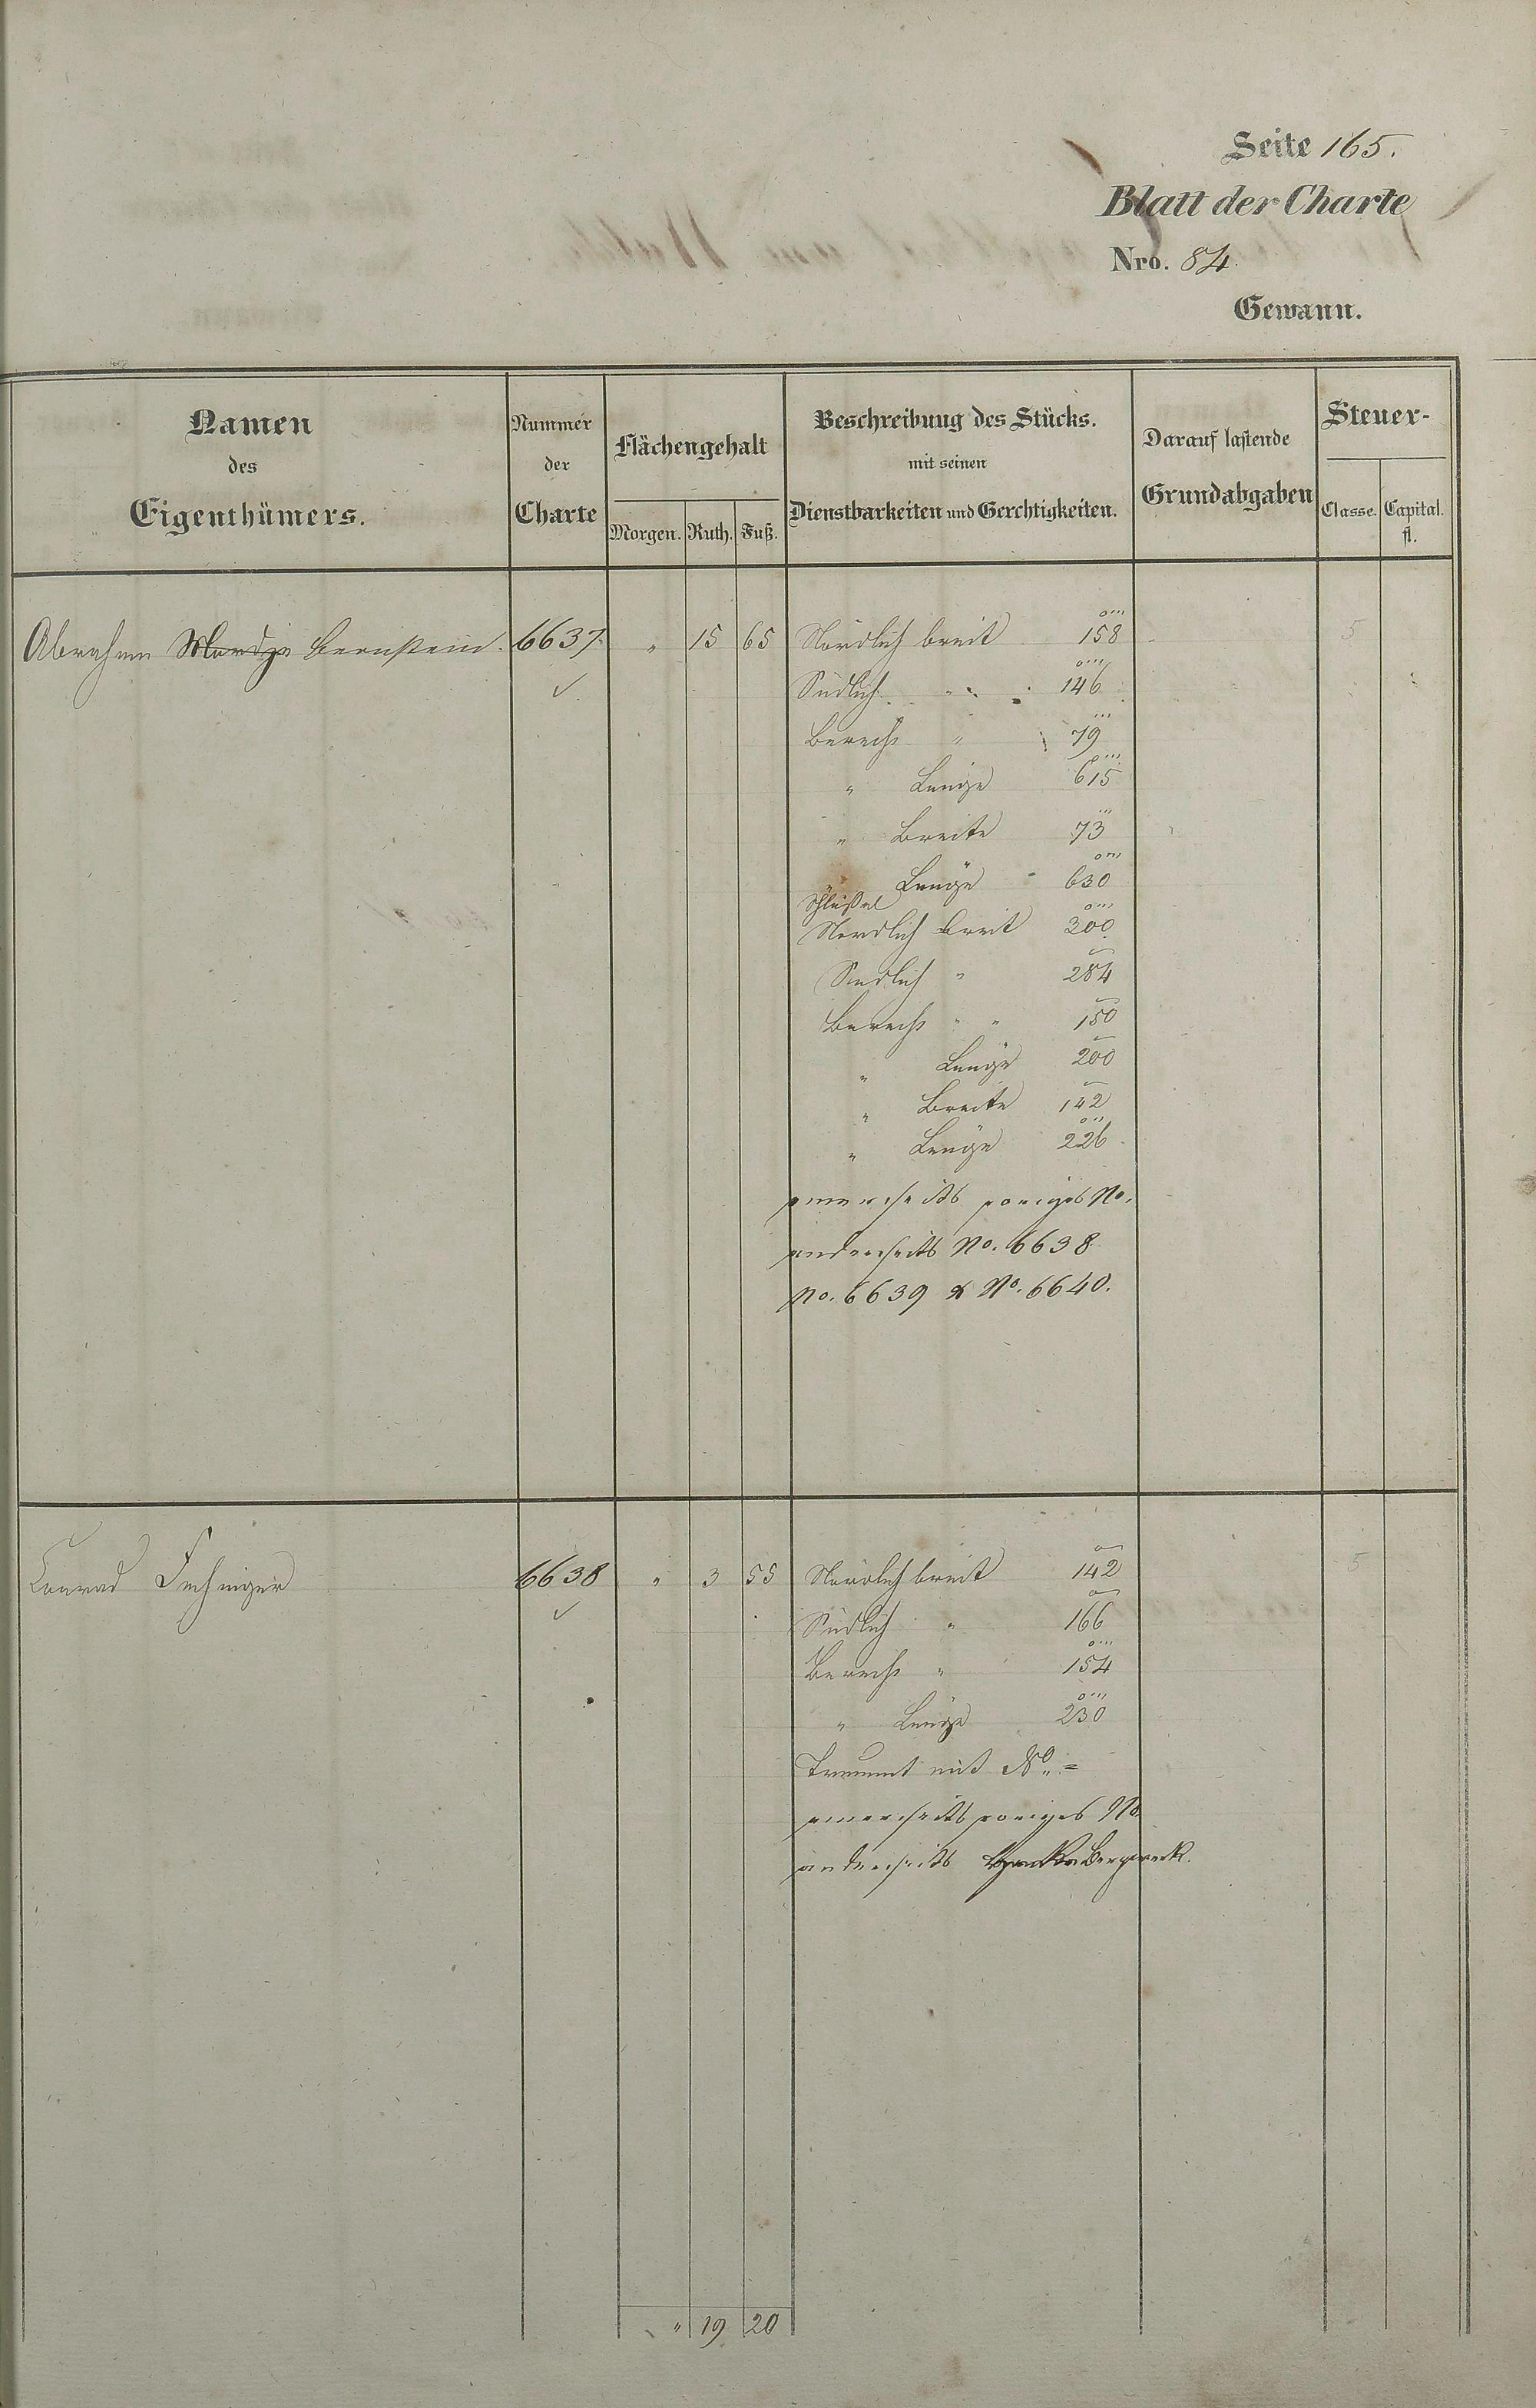 Seite 165.
Blatt der Charte
Nro. 84.
Gewann.
Namen des Eigenthümers.
Nummer der Charte
Flächengehalt
Morgen. Ruth. Fuß.
Beschreibung des Stücks.
mit seinen
Dienstbarkeiten und Gerechtigkeiten.
Darauf lastende
Grundabgaben
Steuer-
Classe. Capital. fl.
Abraham Bernstein. 6637. " 15 65 Nördlich breit 158 5
Südlich " 146
Berech " 79
" Länge 615
" Breite 73
Länge 630
Schlüßel
Nördlich breit 300
Südlich " 284
Berech " " 150
" Länge 200
" Breite 142
" Länge 226
einerseits voriges No.
anderseits No. 6638
No. 6639 & No. 6640.
Conrad 6638 " 3 55 Nördlich breit 142 5
Südlich " 166
Berech " 154
" Länge 230
mit No. =
einerseits voriges No
anderseits
" 19 20